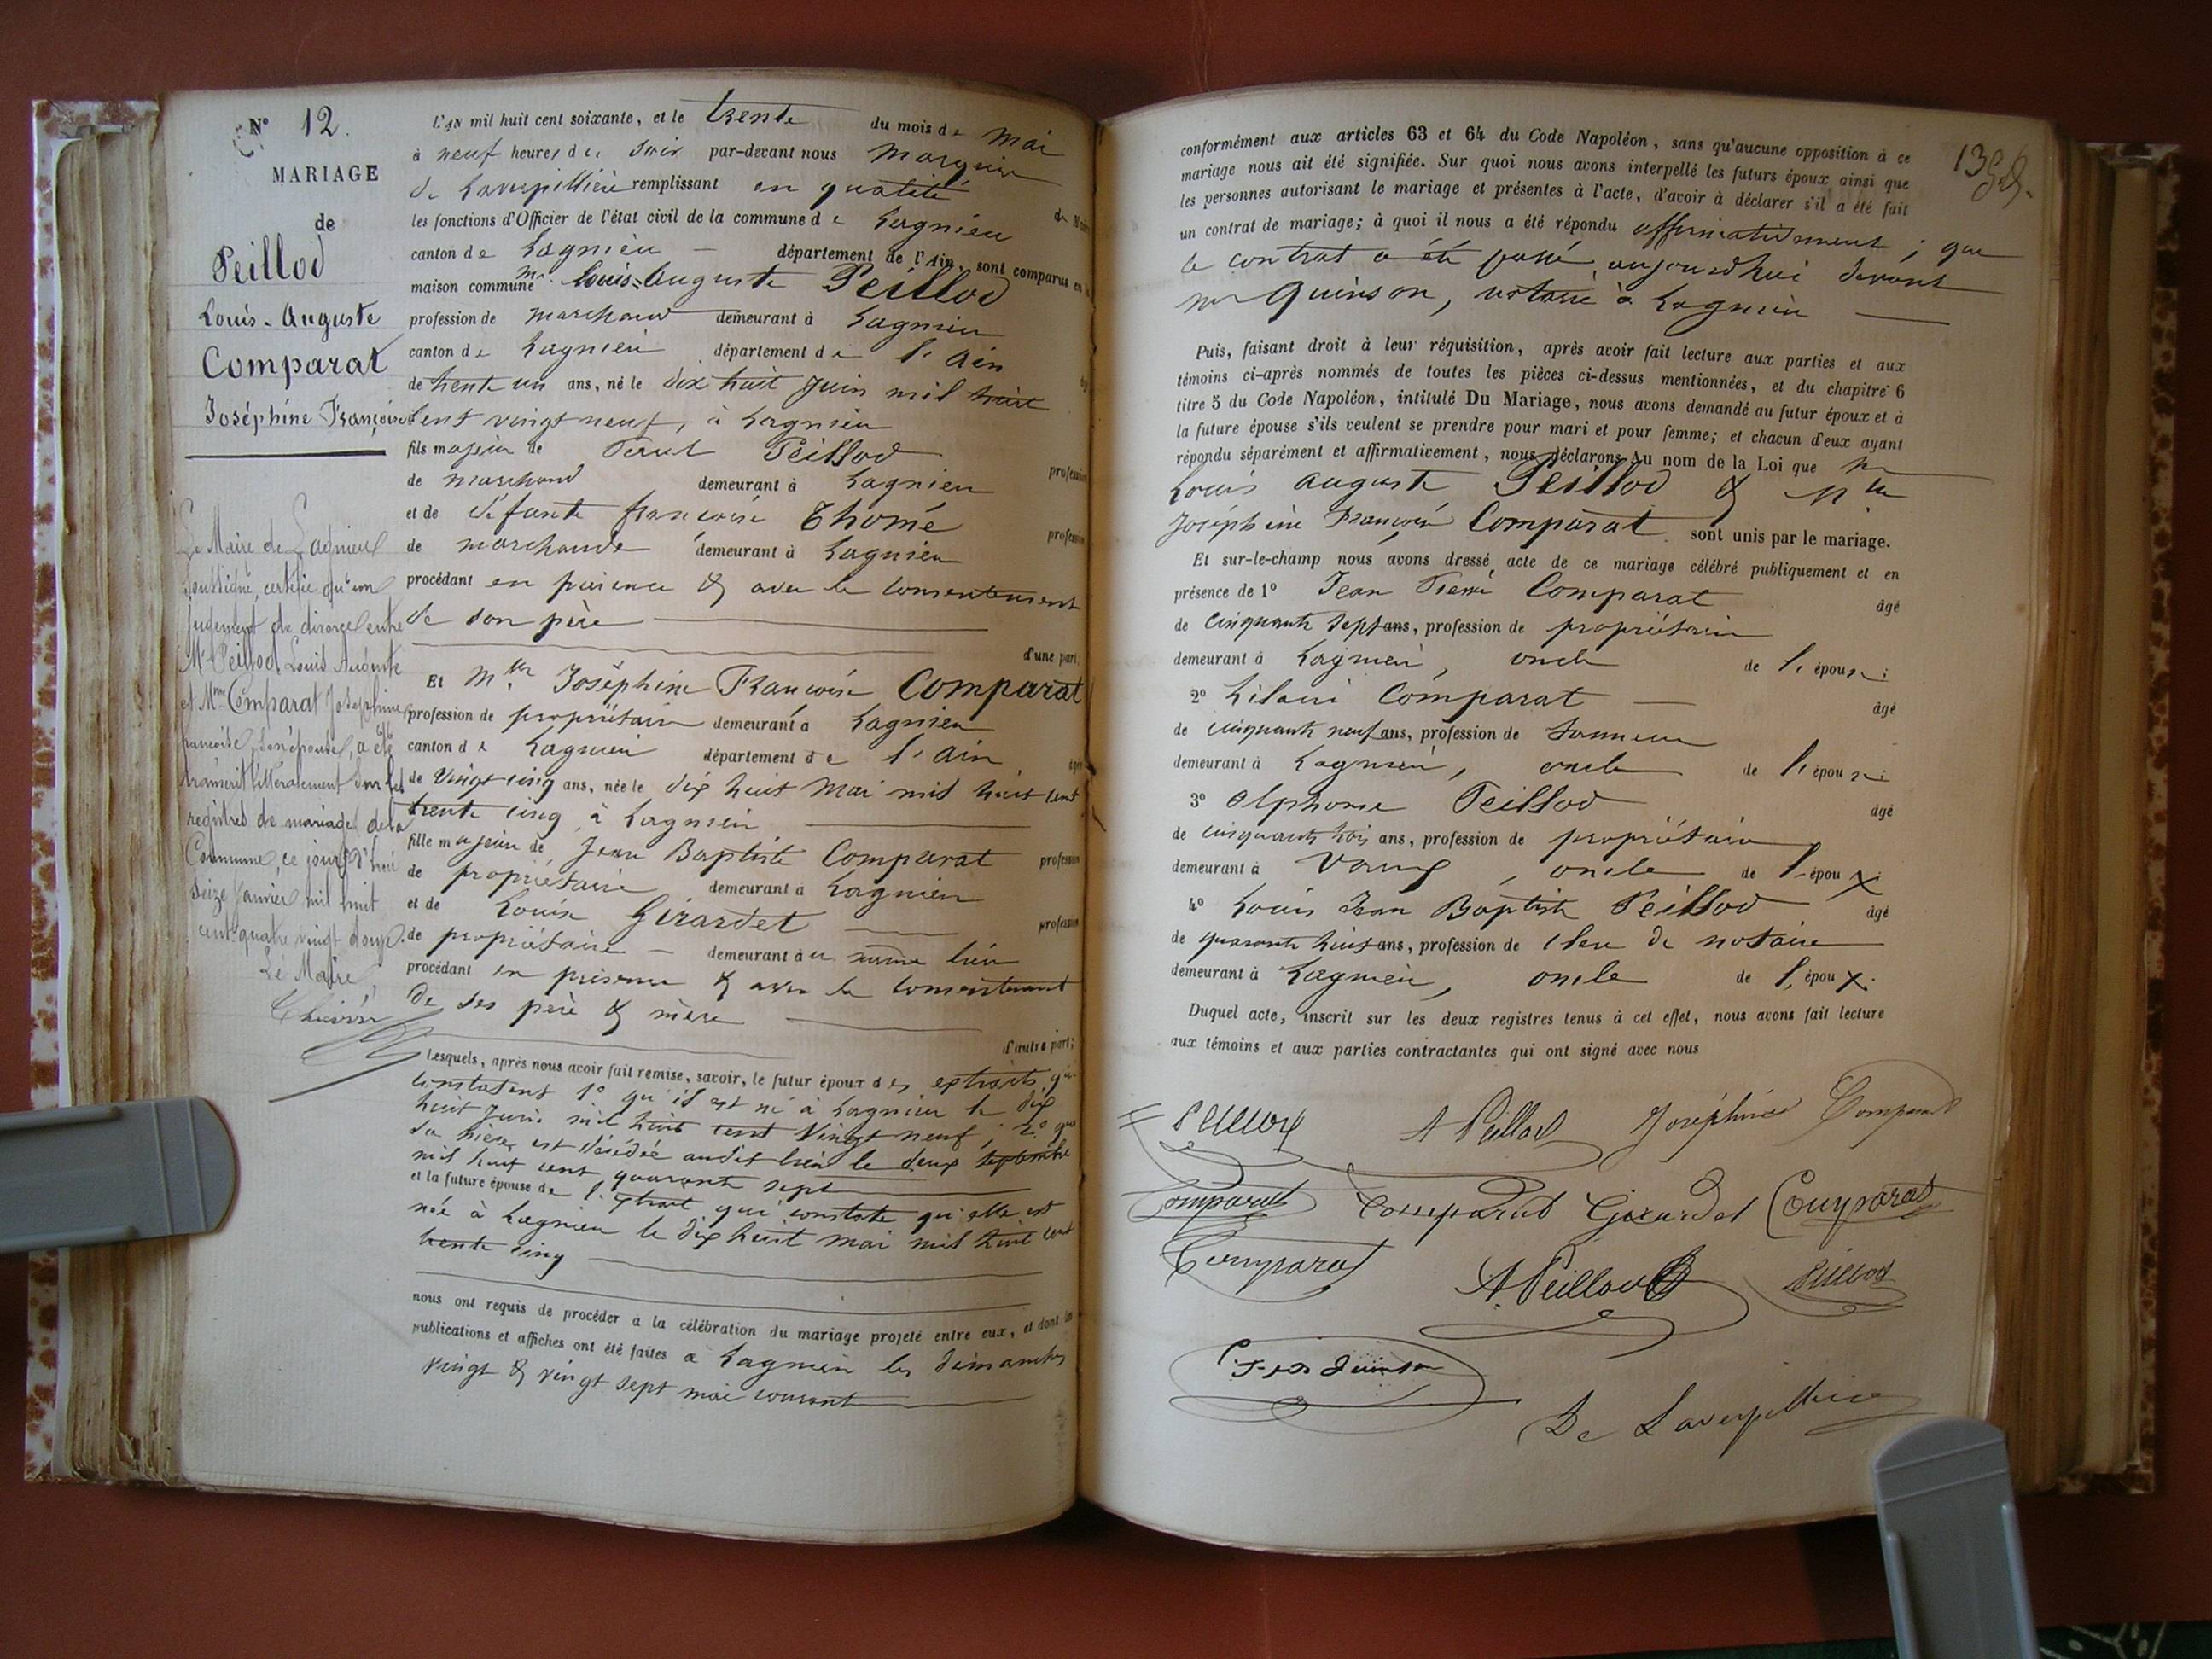 N° 12.
MARIAGE
de
Peillod
Louis-Auguste
Comparat
Joséphine Françoise
Le Maire de Lagnieu
soussigné, certifie qu'un
jugement de divorce entre
Mr Peillod Louis Auguste
et Mme Comparat Joséphine
Françoise, son épouse, a été
transcrit littéralement sur les
registres de mariage de la
Commune, ce jourd'hui
seize janvier mil huit
cent quatre vingt douze.
Le Maire,
L'AN mil huit cent soixante, et le trente du mois de Mai
à neuf heures du soir par-devant nous Marquis
de Laverpillière remplissant en qualité de Maire
les fonctions d'Officier de l'état civil de la commune de Lagnieu
canton de Lagnieu département de l'Ain, sont comparus en la
maison commune Mr Louis-Auguste Peillod
profession de marchand demeurant à Lagnieu
canton de Lagnieu département de l'Ain
de trente un ans, né le dix huit Juin mil huit
cent vingt neuf, à Lagnieu
fils majeur de Peillod profession
de marchand demeurant à Lagnieu
et de défunte françoise Thomé profession
de marchande demeurant à Lagnieu
procédant en présence & avec le consentement
de son père
d'une part,
Et Mlle Joséphine Françoise Comparat
profession de propriétaire demeurant à Lagnieu
canton de Lagnieu département de l'Ain
de Vingt cinq ans, née le dix huit Mai mil huit cent
trente cinq à Lagnieu
fille majeure de Jean Baptiste Comparat profession
de propriétaire demeurant à Lagnieu
et de Louise Girardet profession
de propriétaire demeurant au même lieu
procédant en présence & avec le consentement
de ses père & mère
d'autre part;
Lesquels, après nous avoir fait remise, savoir, le futur époux des extraits qui
constatent 1° qu'il est né à Lagnieu le dix
huit Juin mil huit cent Vingt neuf; 2° que
sa mère est décédée audit lieu le deux septembre
mil huit cent quarante sept
et la future épouse de l'extrait qui constate qu'elle est
née à Lagnieu le dix huit mai mil huit cent
trente cinq
nous ont requis de procéder à la célébration du mariage projeté entre eux, et dont les
publications et affiches ont été faites à Lagnieu les dimanches
vingt & vingt sept mai courant
13
conformément aux articles 63 et 64 du Code Napoléon, sans qu'aucune opposition à ce
mariage nous ait été signifiée. Sur quoi nous avons interpellé les futurs époux ainsi que
les personnes autorisant le mariage et présentes à l'acte, d'avoir à déclarer s'il a été fait
un contrat de mariage; à quoi il nous a été répondu affirmativement; que
le contrat a été passé aujourd'hui devant
Me Quinson, notaire à Lagnieu
Puis, faisant droit à leur réquisition, après avoir fait lecture aux parties et aux
témoins ci-après nommés de toutes les pièces ci-dessus mentionnées, et du chapitre 6
titre 5 du Code Napoléon, intitulé Du Mariage, nous avons demandé au futur époux et à
la future épouse s'ils veulent se prendre pour mari et pour femme; et chacun d'eux ayant
répondu séparément et affirmativement, nous déclarons Au nom de la Loi que Mr
Louis Auguste Peillod & Mlle
Joséphine Françoise Comparat sont unis par le mariage.
Et sur-le-champ nous avons dressé acte de ce mariage célébré publiquement et en
présence de 1° Jean Pierre Comparat âgé
de cinquante sept ans, profession de propriétaire
demeurant à Lagnieu, oncle de l'épouse;
2° Hilaire Comparat âgé
de cinquante neuf ans, profession de tanneur
demeurant à Lagnieu, oncle de l'épouse;
3° Alphonse Peillod âgé
de cinquante trois ans, profession de propriétaire
demeurant à Vaux, oncle de l'époux;
4° Louis Jean Baptiste Peillod âgé
de quarante huit ans, profession de clerc de notaire
demeurant à Lagnieu, oncle de l'époux.
Duquel acte, inscrit sur les deux registres tenus à cet effet, nous avons fait lecture
aux témoins et aux parties contractantes qui ont signé avec nous
Peillod A Peillod Joséphine Comparat
Comparat Comparat Girardet Comparat
Comparat A. Peillod Peillod
Quinson
De Laverpillière